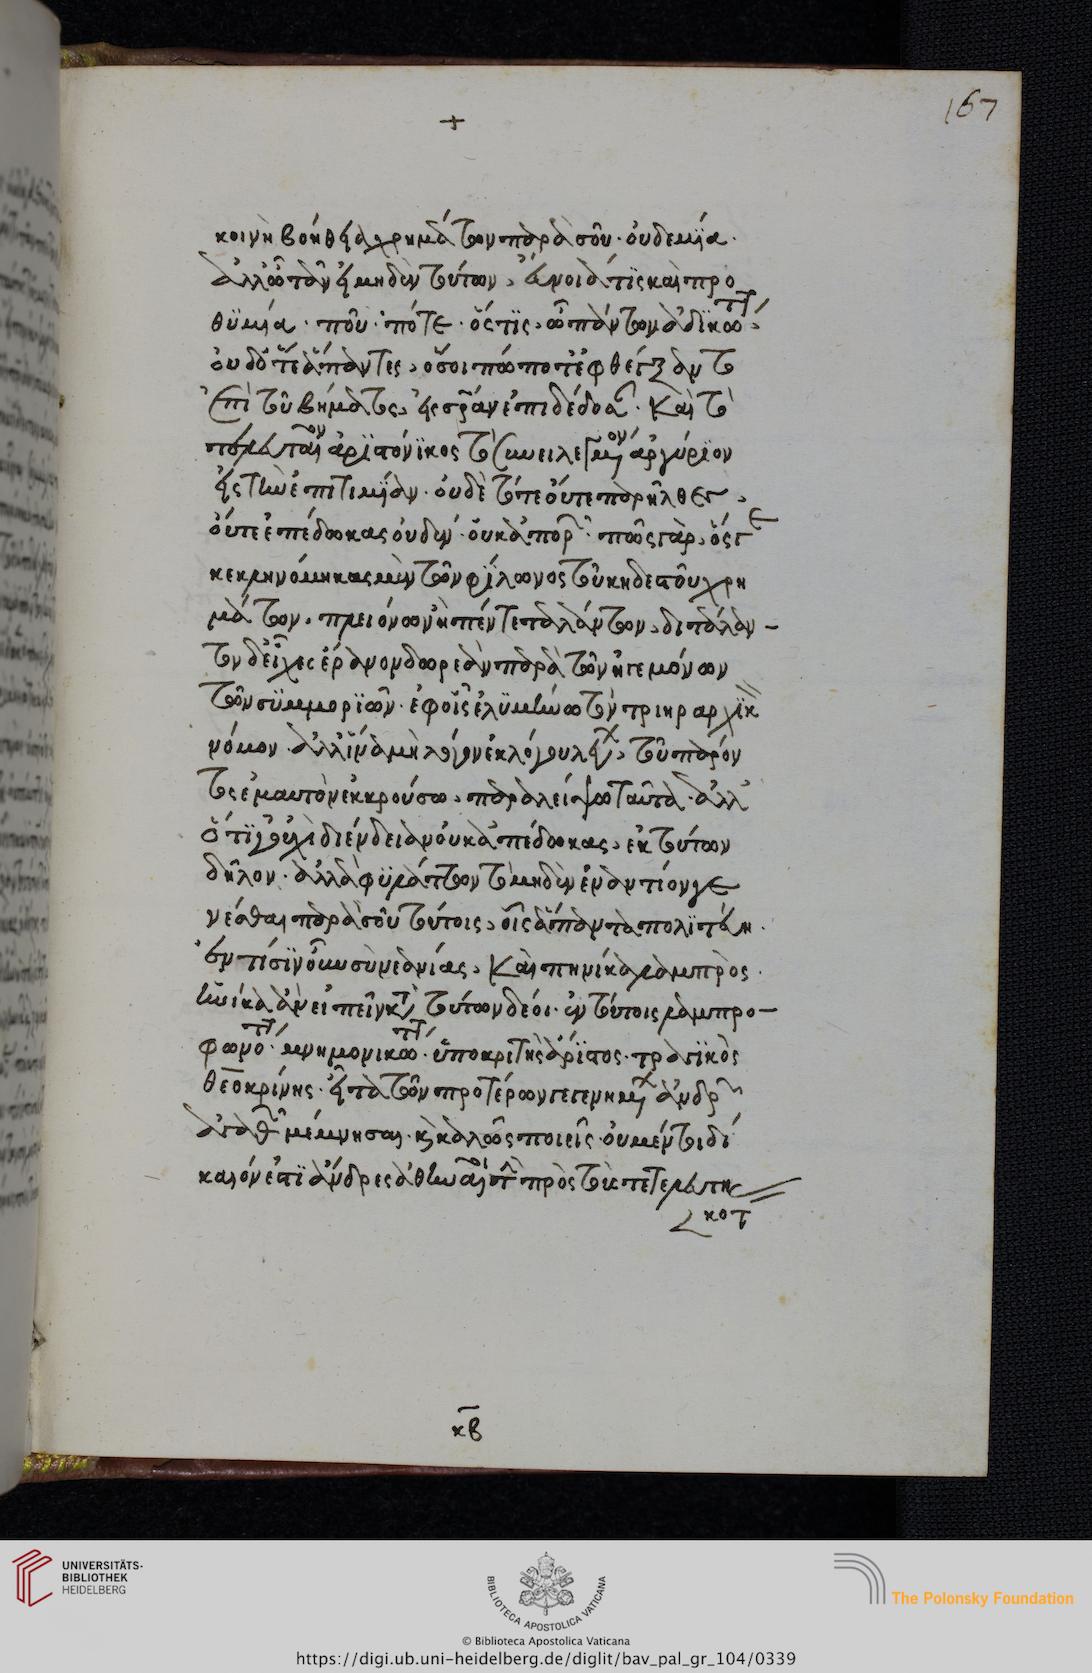 +
167
κοινὴ βοήθεια χρημάτων παρὰ σοῦ· οὐδεμία·
ἀλλ' ὦ τᾶν εἰ μηδὲν τούτων, εὔνοιά τις καὶ προ
θυμία· ποῦ· πότε· ὅστις, ὦ πάντων ἀδικώτατε,
οὐδ' ὅτε ἅπαντες, ὅσοι πώποτ' ἐφθέγξαντο
ἐπὶ τοῦ βήματος, εἰς σωτηρίαν ἐπιδέδοσαν· καὶ τὸ
τελευταῖον ἀριστόνικος τὸ συνειλεγμένον ἀργύριον
εἰς τὴν ἐπιτιμίαν· οὐδὲ τότε οὔτε παρῆλθες,
οὔτε ἐπέδωκας οὐδέν· οὐκ ἀπορῶν· πῶς γὰρ, ὅς γε
κεκληρονόμηκας μὲν τῶν φίλωνος τοῦ κηδεστοῦ χρη
μάτων, πλειόνων ἢ πέντε ταλάντων, διτάλαν-
τον δ' εἶχες ἔρανον δωρεὰν παρὰ τῶν ἡγεμόνων
τῶν συμμοριῶν· ἐφ' οἷς ἐλυμήνω τὸν τριηραρχικὸν
νόμον· ἀλλ' ἵνα μὴ λόγον ἐκ λόγου λέγων, τοῦ παρόν
τος ἐμαυτὸν ἐκκρούσω, παραλείψω ταῦτα· ἀλλ'
ὅτι γ' οὐχὶ δι' ἔνδειαν οὐκ ἀπέδωκας, ἐκ τούτων
δῆλον· ἀλλὰ φυλάττων τὸ μηδὲν ἐναντίον γε
νέσθαι παρὰ σοῦ τούτοις, οἷς ἅπαντα πολιτεύῃ·
ἐν τίσιν οὖν σὺ νεανίας, καὶ πηνίκα λαμπρός·
ἡνίκα ἂν εἰπεῖν κατὰ τούτων δέοι· ἐν τούτοις λαμπρο-
φωνότατος· μνημονικώτατος· ὑποκριτὴς ἄριστος· τραγικὸς
θεοκρίνης· εἶτα τῶν προτέρων γεγενημένων ἀνδρῶν
ἀγαθῶν μέμνησαι· καὶ καλῶς ποιεῖς· οὐ μέντοι δί
καιόν ἐστι ἄνδρες ἀθηναῖοι τὴν πρὸς τοὺς τετελευτη
κότ
κβ
UNIVERSITÄTS-
BIBLIOTHEK
HEIDELBERG
BIBLIOTECA APOSTOLICA VATICANA
The Polonsky Foundation
© Biblioteca Apostolica Vaticana
https://digi.ub.uni-heidelberg.de/diglit/bav_pal_gr_104/0339